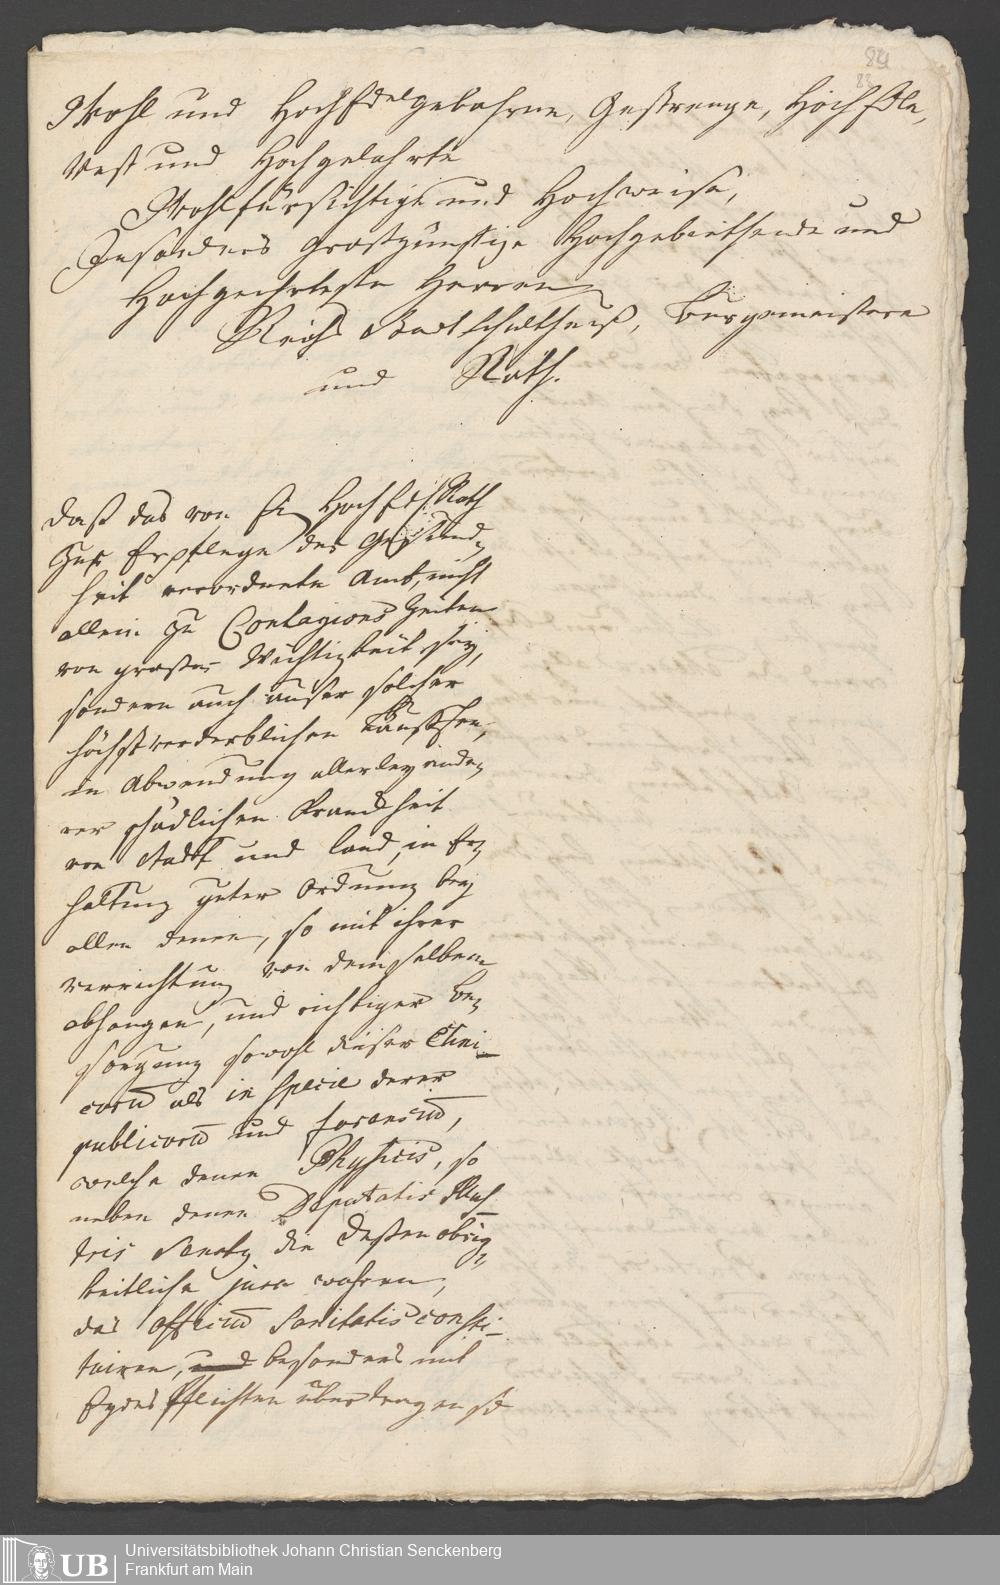 84
83
Wohl und HochEdelgebohrne, Gestrenge, HochEdle,
Vest und Hochgelahrte
Wohlfürsichtige und Hochweise,
Insonders Grosgünstige Hochgebiethende und
Hochgeehrteste Herren
Reichs Stadt Schultheiß, Burgemeistere
und Räth.
Daß das von E. HochEdl. Rath
zur Erpflege der Gesund-
heit verordnete Amt, nicht
allein zu Contagions Zeiten
von großer Wichtigkeit sey,
sondern auch auser solcher
höchstverderblichen
in Abwendung allerley ande-
rer schädlichen Kranckheit
von Stadt und Land, in Er-
haltung guter Ordnung bey
allen denen, so mit ihrer
verrichtung von demselben
abhangen, und richtiger Be-
sorgung sowohl dieser Clini-
corū als in specie derer
publicorū und forensiū,
welche denen Physicis, so
neben denen Deputatis Illus-
tris Senatg die dessen obrig-
keitliche jura wahren,
das Officiū Sanitatis consti-
tuiren, und besonders mit
Eydes Pflichten übertragen sd
UB
Universitätsbibliothek Johann Christian Senckenberg
Frankfurt am Main